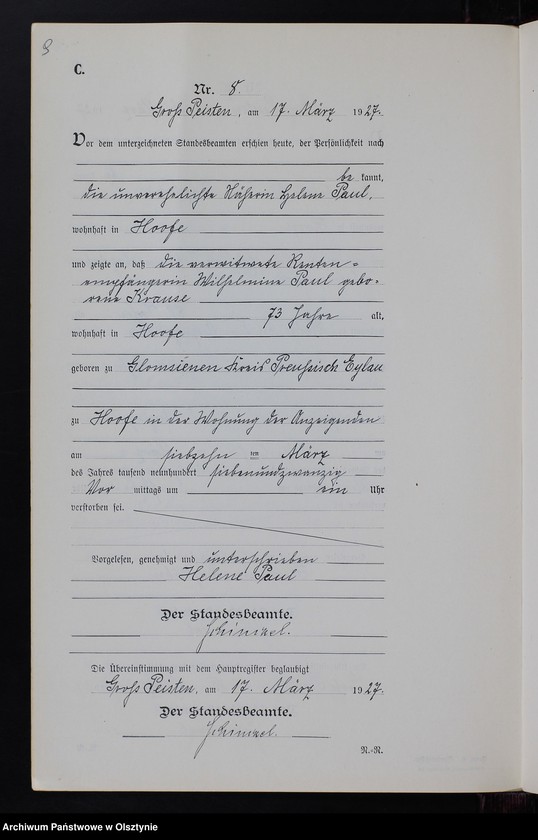 8
C.
Nr. 8.
Groß Peisten, am 17. März 1927.
Vor dem unterzeichneten Standesbeamten erschien heute, der Persönlichkeit nach
be kannt,
die unverehelichte Näherin Helene Paul,
wohnhaft in Hoofe
und zeigte an, daß die verwitwete Renten-
empfängerin Wilhelmine Paul gebo-
rene Krause
73 Jahre alt,
wohnhaft in Hoofe
geboren zu Glomsienen Kreis Preußisch Eylau
zu Hoofe in der Wohnung der Anzeigenden
am siebzehn ten März
des Jahres tausend neunhundert siebenundzwanzig
Vor mittags um ein Uhr
verstorben sei.
Vorgelesen, genehmigt und unterschrieben
Helene Paul
Der Standesbeamte.
Schimael.
Die Übereinstimmung mit dem Hauptregister beglaubigt
Groß Peisten, am 17. März 1927.
Der Standesbeamte.
Schimael.
N.-R.
Archiwum Państwowe w Olsztynie